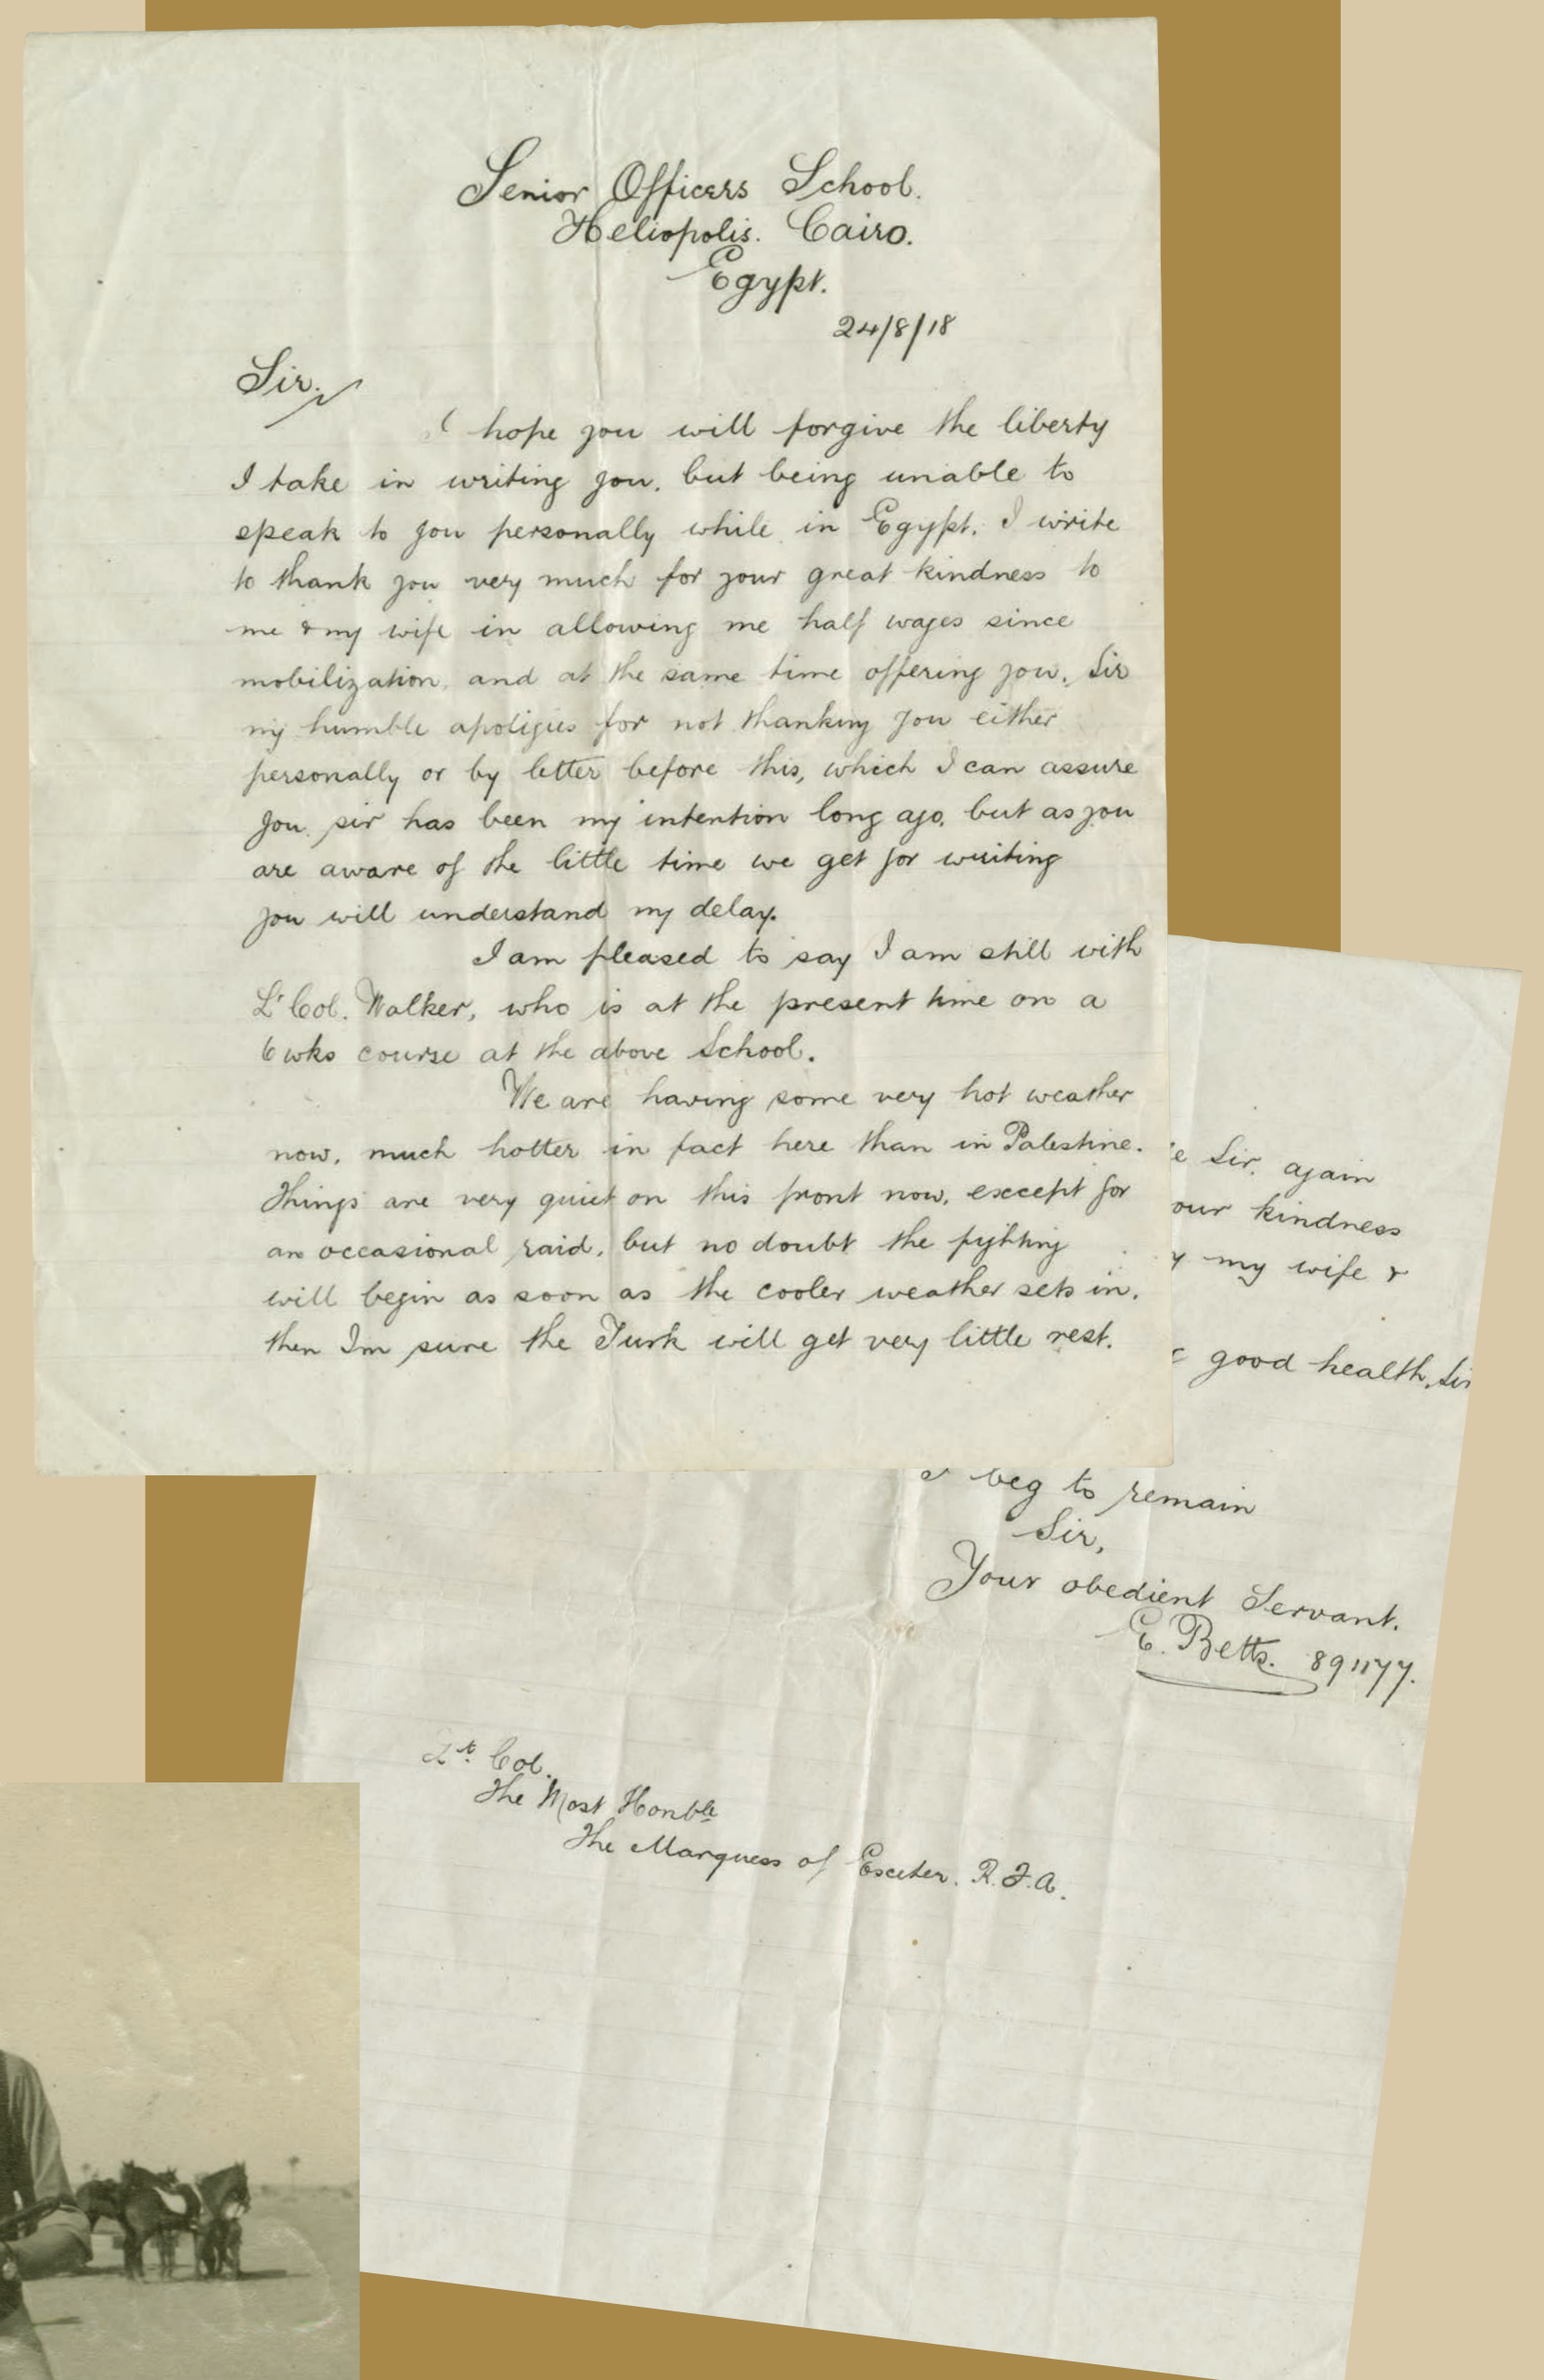 Senior Officers School.
Heliopolis. Cairo.
Egypt.
24/8/18
Sir,
I hope you will forgive the liberty
I take in writing you, but being unable to
speak to you personally while in Egypt, I write
to thank you very much for your great kindness to
me & my wife in allowing me half wages since
mobilization, and at the same time offering you, Sir
my humble apoligies for not thanking you either
personally or by letter before this, which I can assure
you sir has been my intention long ago, but as you
are aware of the little time we get for writing
you will understand my delay.
I am pleased to say I am still with
Lt Col. Walker, who is at the present time on a
6 wks course at the above School.
We are having some very hot weather
now, much hotter in fact here than in Palestine.
Things are very quiet on this front now, except for
an occasional raid, but no doubt the fighting
will begin as soon as the cooler weather sets in,
then Im sure the Turk will get very little rest.
Sir, again
our kindness
my wife &
good health, Sir
I beg to remain
Sir,
Your obedient Servant.
E. Betts. 891177.
Lt. Col.
The Most Honble
The Marquess of Exeter. R.F.A.